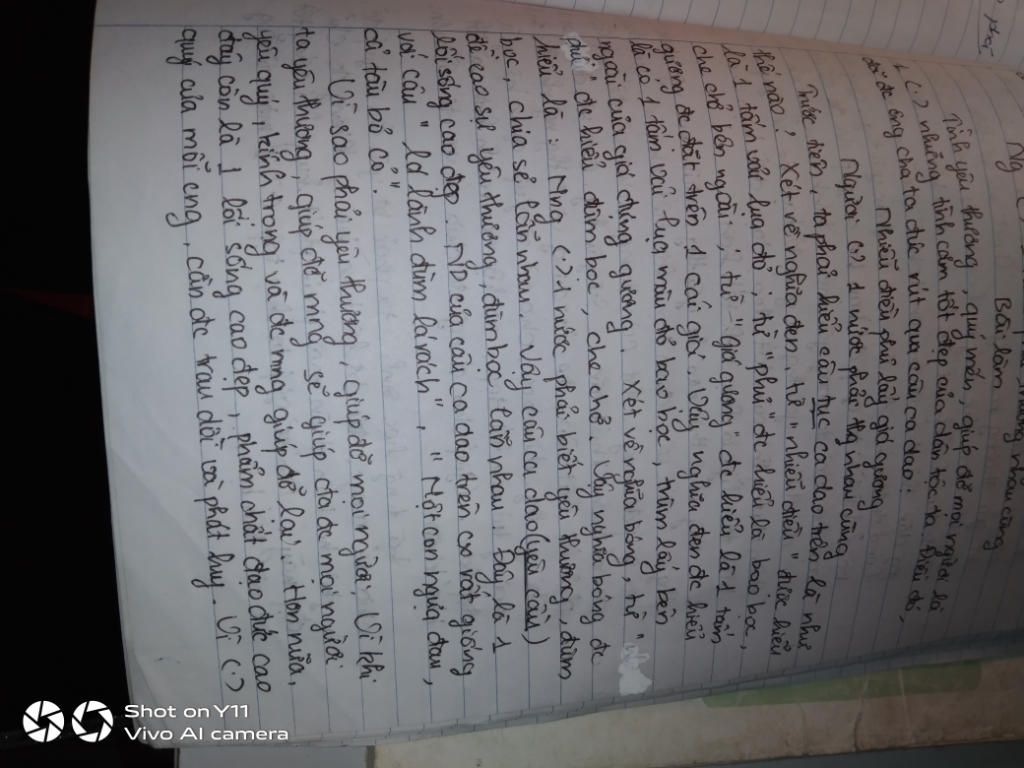 Bài làm
Tình yêu thương, quý mến, giúp đỡ mọi người là
1 (.) những tình cảm tốt đẹp của dân tộc ta. Điều đó,
đã đc ông cha ta đúc rút qua câu ca dao:
Nhiễu điều phủ lấy giá gương
Người (.) 1 nước phải thg nhau cùng
Trước tiên, ta phải hiểu câu tục ca dao trên là như
thế nào? Xét về nghĩa đen, từ "nhiễu điều" được hiểu
là 1 tấm vải lụa đỏ, từ "phủ" đc hiểu là bao bọc,
che chở bên ngoài, từ "giá gương" đc hiểu là 1 tấm
gương đc đặt trên 1 cái giá. Vậy nghĩa đen đc hiểu
là có 1 tấm vải lụa màu đỏ bao bọc, trùm lấy bên
ngoài của giá đựng gương. Xét về nghĩa bóng, từ "
phủ" đc hiểu đùm bọc, che chở. Vậy nghĩa bóng đc
hiểu là: Mng (.) 1 nước phải biết yêu thương, đùm
bọc, chia sẻ lẫn nhau. Vậy câu ca dao (yêu cầu)
đề cao sự yêu thương, đùm bọc lẫn nhau. Đây là 1
lối sống cao đẹp. ND của câu ca dao trên có rất giống
với câu "lá lành đùm lá rách", "Một con ngựa đau,
cả tàu bỏ cỏ".
Vì sao phải yêu thương, giúp đỡ mọi người, Vì khi
ta yêu thương, giúp đỡ mng sẽ giúp ta đc mọi người
yêu quý, kính trọng và đc mng giúp đỡ lại. Hơn nữa,
đây còn là 1 lối sống cao đẹp, phẩm chất đạo đức cao
quý của mỗi cng, cần đc trau dồi và phát huy. Vì (.)
Shot on Y11
Vivo AI camera